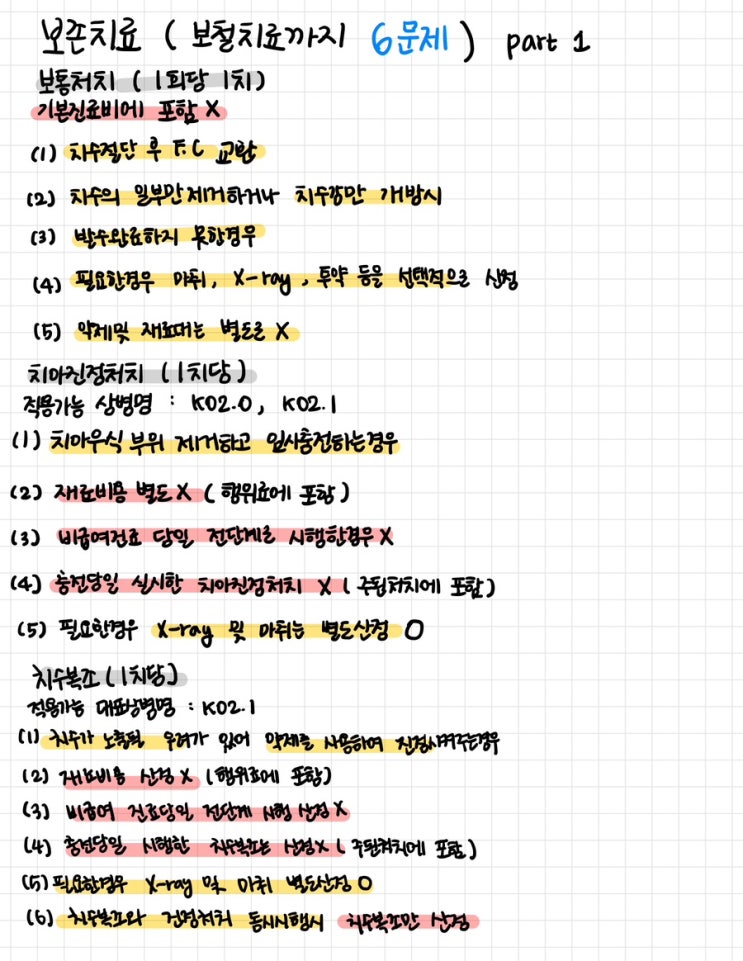 보존치료 ( 보철치료까지 6문제 ) part 1
보통처치 ( 1회당 1치)
기본진료비에 포함 X
(1) 치수절단 후 F.C 교환
(2) 치수의 일부만 제거하거나 치수강만 개방시
(3) 발수완료하지 못한경우
(4) 필요한경우 마취, X-ray, 투약 등을 선택적으로 산정
(5) 약제및 재료대는 별도로 X
치아진정처치 ( 1치당 )
적용가능 상병명 : K02.0, K02.1
(1) 치아우식 부위 제거하고 임시충전하는경우
(2) 재료비용 별도 X ( 행위료에 포함 )
(3) 비급여진료 당일 전단계로 시행한경우 X
(4) 충전당일 실시한 치아진정처치 X ( 주된처치에 포함)
(5) 필요한경우 X-ray 및 마취는 별도산정 O
치수복조 (1치당)
적용가능 대표상병명 : K02.1
(1) 치수가 노출될 우려가 있어 약제를 사용하여 진정시켜주는경우
(2) 재료비용 산정 X (행위료에 포함)
(3) 비급여 진료당일 전단계 시행 산정 X
(4) 충전당일 시행한 치수복조는 산정X ( 주된처치에 포함)
(5) 필요한경우 X-ray 및 마취 별도산정 O
(6) 치수복조와 진정처치 동시시행시 치수복조만 산정